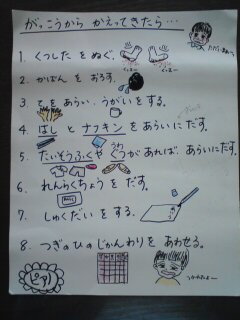 がっこうから かえってきたら…
1. くつした を ぬぐ。
2. かばん を おろす。
3. てを あらい、うがい を する。
4. はし と ナフキン を あらいに だす。
5. たいそうふくや ぐつ が あれば、あらいに だす。
6. れんらくちょう を だす。
7. しゅくだい を する。
8. つぎの ひの じかんわり を あわせる。
ピアノ